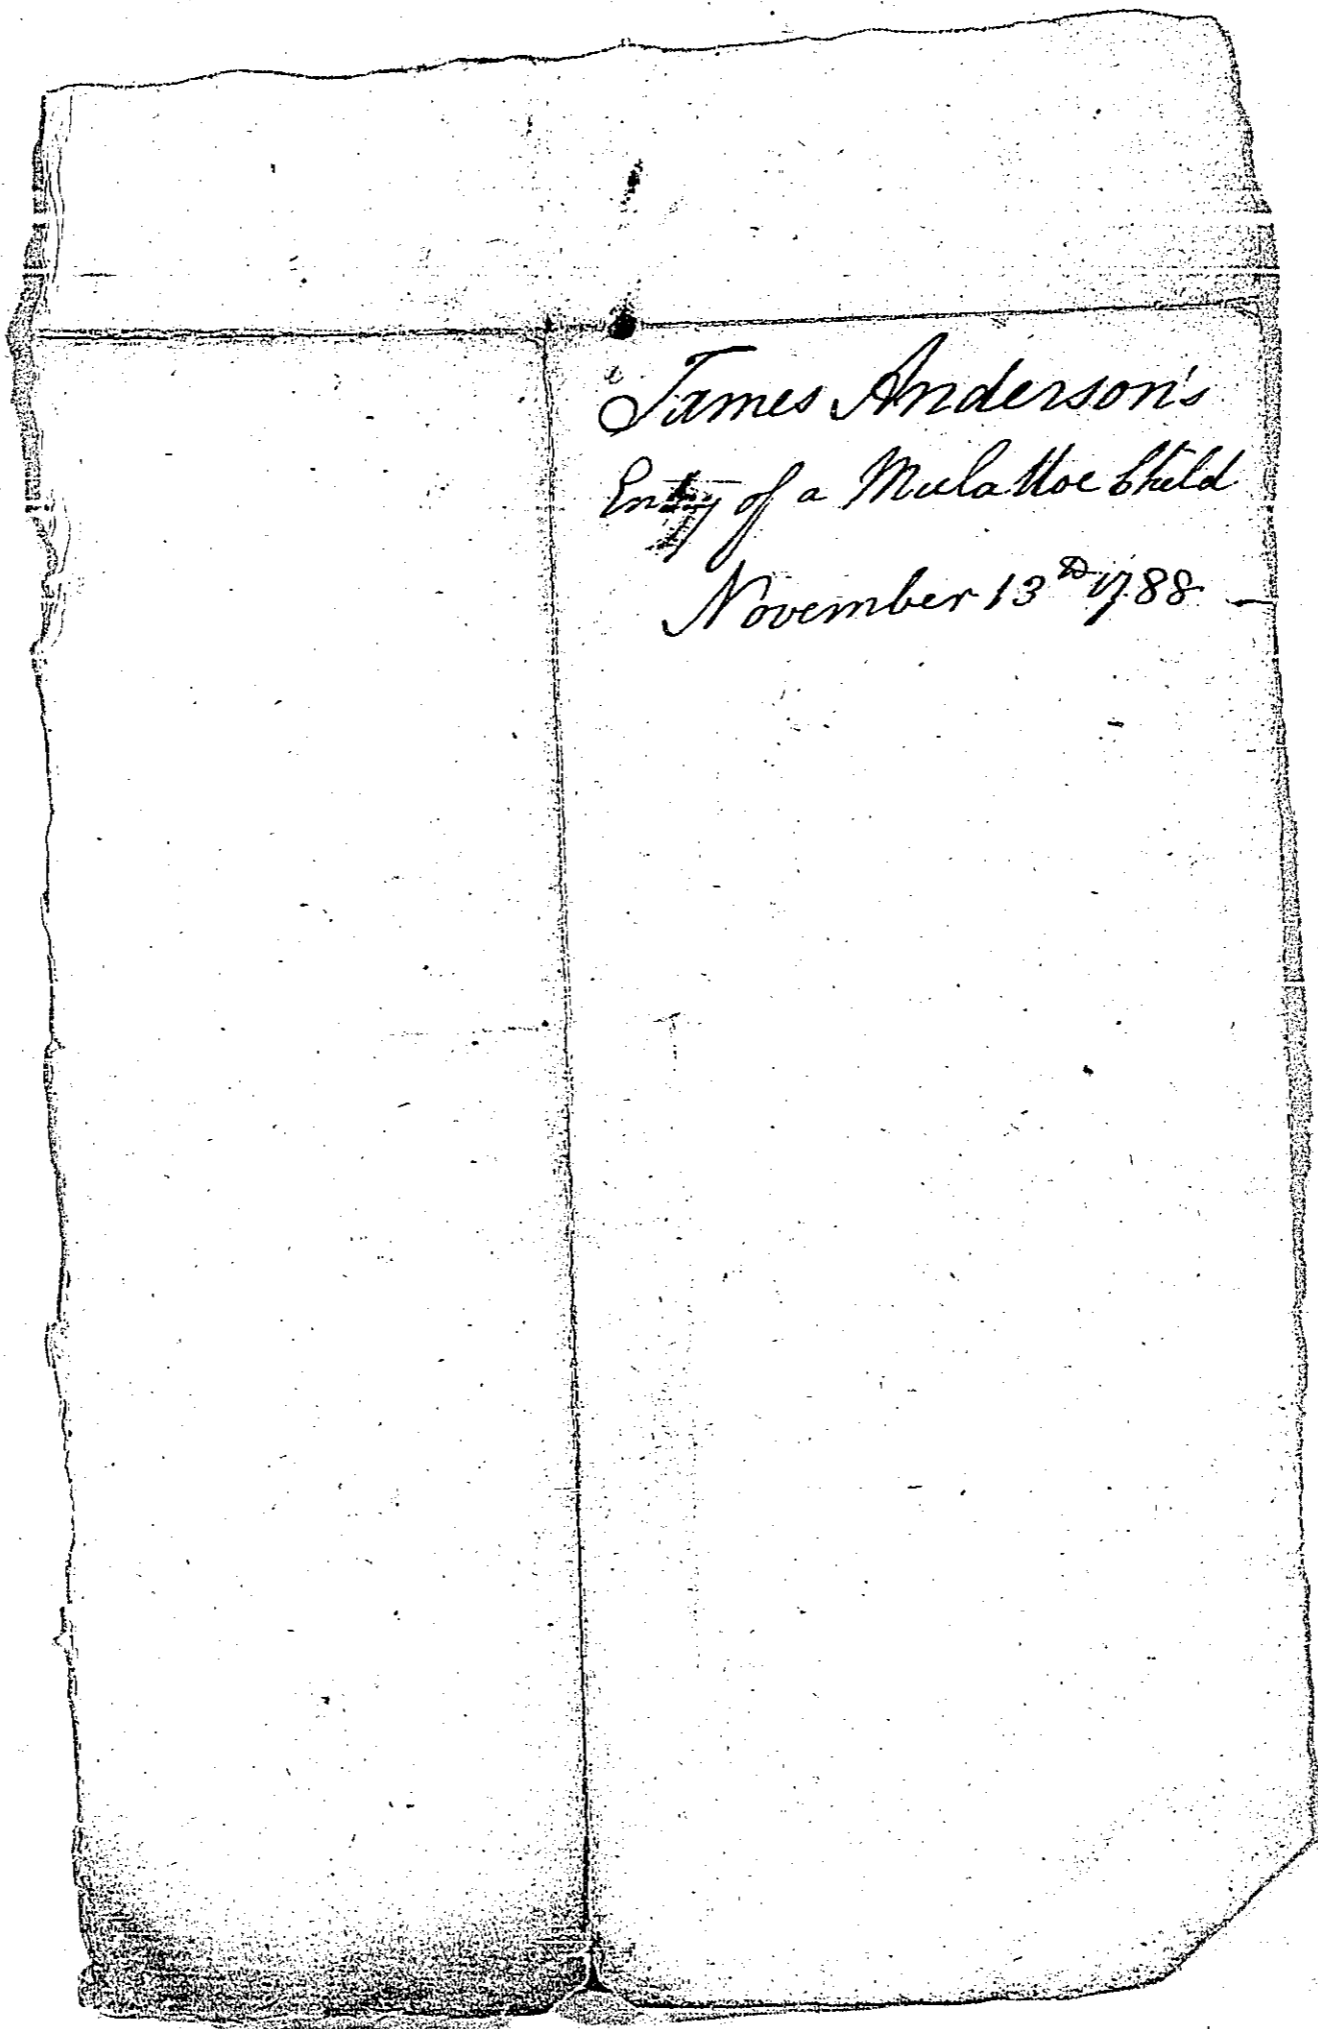 James Anderson's
Entry of a Mulattoe Child
November 13th 1788